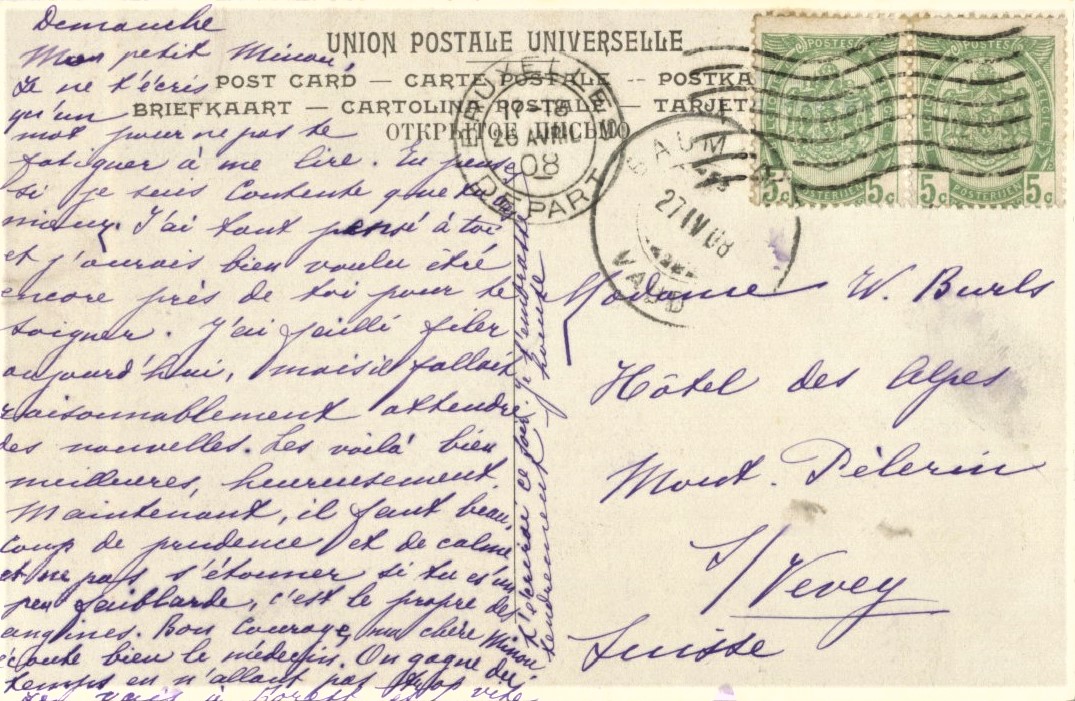 Demanche
Mon petit Minou!
Je ne t'écris
qu'un
mot pour ne pas te
fatiguer à me lire. Tu penses
si je suis contente que tu ailles
mieux. J'ai tant pensé à toi
et j'aurais bien voulu être
encore près de toi pour te
soigner. J'ai failli filer
aujourd'hui, mais il fallait
raisonnablement attendre
des nouvelles. Les voilà bien
meilleures, heureusement.
Maintenant, il faut beau-
coup de prudence et de calme
et ne pas s'étonner si tu es un
peu faiblarde, c'est le propre des
angines. Bon courage, ma chère Minou
écoute bien le médecin. On gagne du
temps en n'allant pas trop vite
à
t'écrirai ce soir. Je t'embrasse
tendrement
UNION POSTALE UNIVERSELLE
POST CARD — CARTE POSTALE -- POSTKA
BRIEFKAART — CARTOLINA POSTALE — TARJET
ОТКРЫТОЕ ПИСЬМО
BRUXELLES
26 AVRIL
08
DEPART
BAUM
27 IV 08
VAUD
POSTES
5c 5c
POSTERIJEN
POSTES
5c 5c
POSTERIJEN
Madame W. Burls
Hôtel des Alpes
Mont. Pèlerin
s/ Vevey
Suisse